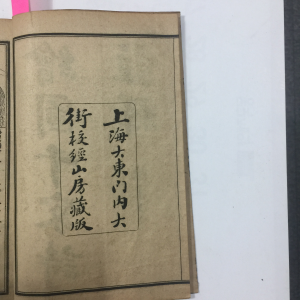 上海大東門內大
街校經山房藏版